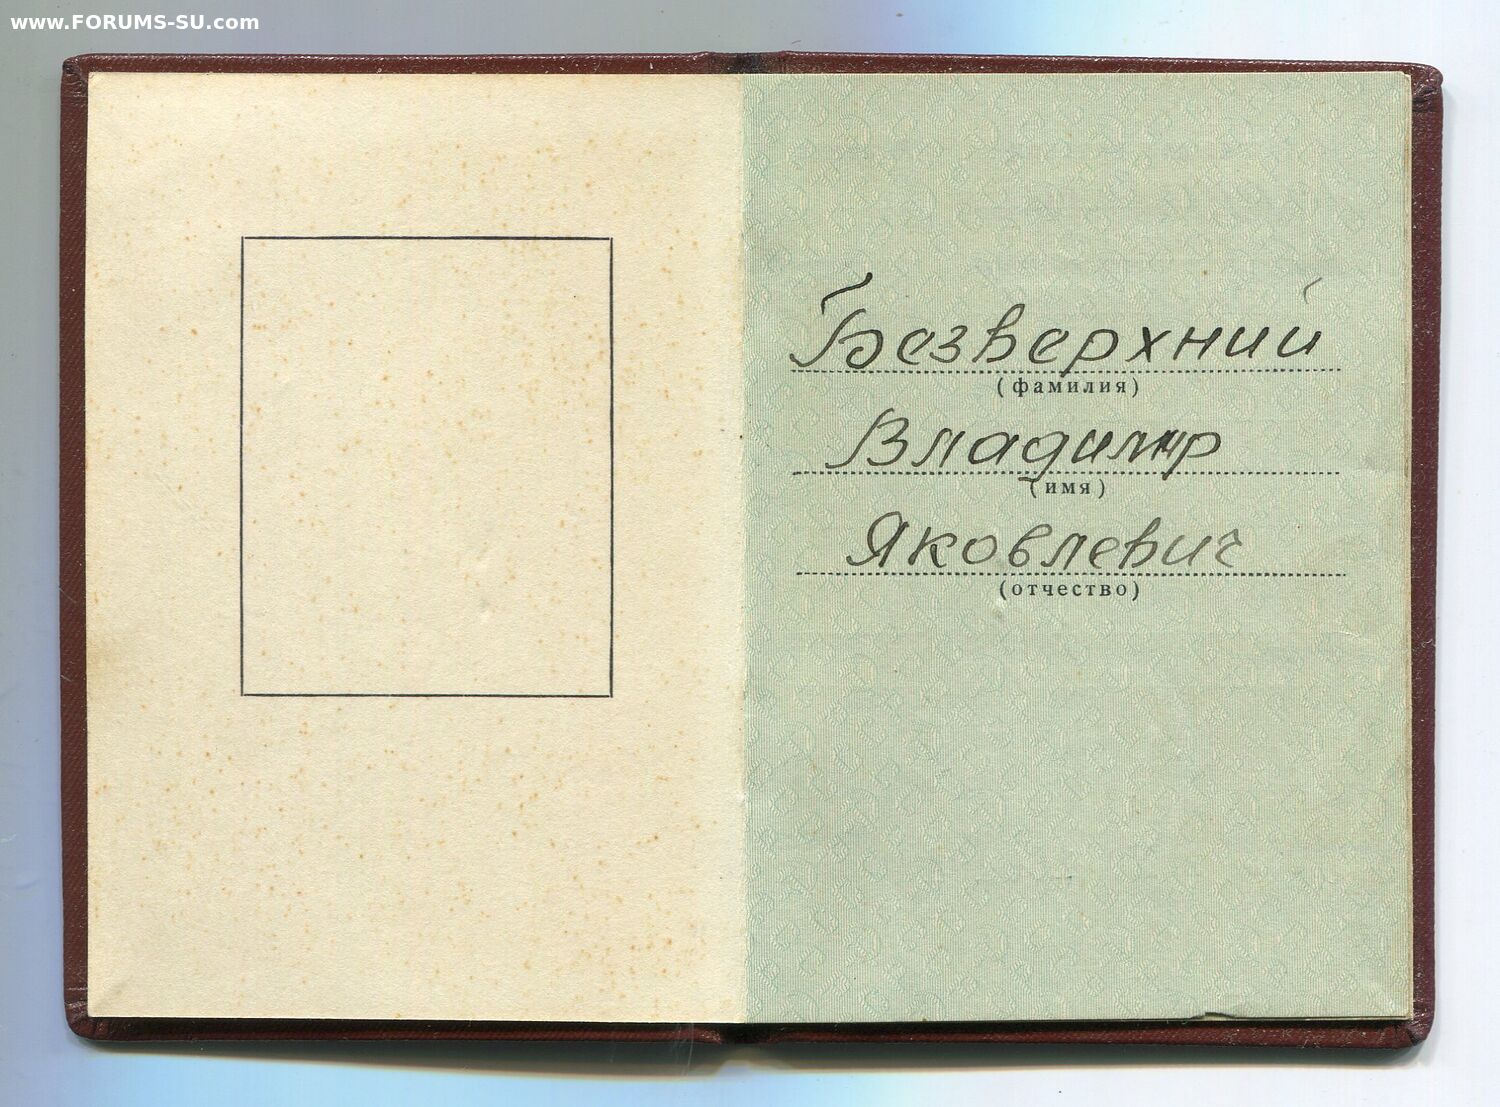 www.FORUMS-SU.com
Безверхний
(фамилия)
Владимир
(имя)
Яковлевич
(отчество)